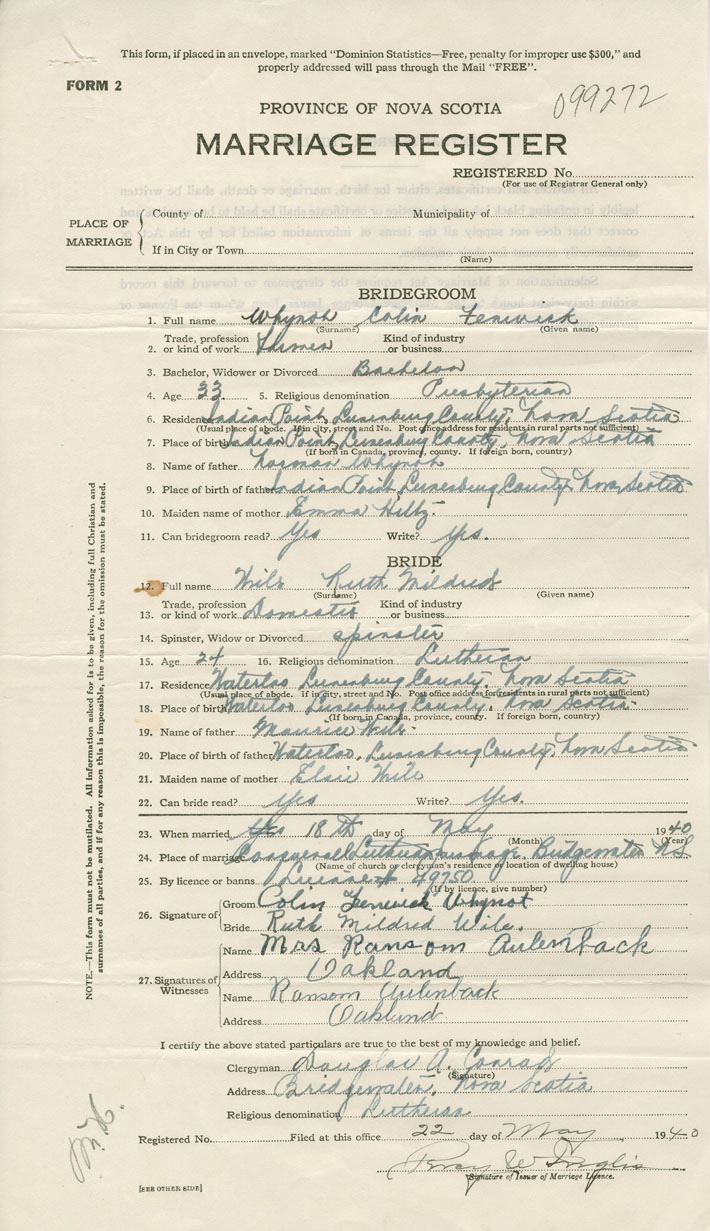 This form, if placed in an envelope, marked "Dominion Statistics—Free, penalty for improper use $300," and
properly addressed will pass through the Mail "FREE".
FORM 2
099272
PROVINCE OF NOVA SCOTIA
MARRIAGE REGISTER
REGISTERED No.
(For use of Registrar General only)
PLACE OF MARRIAGE
County of Municipality of
If in City or Town
(Name)
BRIDEGROOM
1. Full name Whynot Colin Fenwick
(Surname) (Given name)
2. Trade, profession or kind of work Kind of industry or business
3. Bachelor, Widower or Divorced Bachelor
4. Age 33 5. Religious denomination Presbyterian
6. Residence Indian Point, Lunenburg County, Nova Scotia
(Usual place of abode. If in city, street and No. Post office address for residents in rural parts not sufficient)
7. Place of birth Indian Point, Lunenburg County, Nova Scotia
(If born in Canada, province, county. If foreign born, country)
8. Name of father Norman Whynot
9. Place of birth of father Indian Point, Lunenburg County, Nova Scotia
10. Maiden name of mother Emma Hiltz
11. Can bridegroom read? Yes Write? Yes.
BRIDE
12. Full name Wile Ruth Mildred
(Surname) (Given name)
13. Trade, profession or kind of work Domestic Kind of industry or business
14. Spinster, Widow or Divorced spinster
15. Age 24 16. Religious denomination Lutheran
17. Residence Waterloo Lunenburg County, Nova Scotia
(Usual place of abode. If in city, street and No. Post office address for residents in rural parts not sufficient)
18. Place of birth Waterloo Lunenburg County, Nova Scotia
(If born in Canada, province, county. If foreign born, country)
19. Name of father Maurice Wile
20. Place of birth of father Waterloo, Lunenburg County, Nova Scotia
21. Maiden name of mother Elsie Wile
22. Can bride read? Yes Write? Yes.
23. When married 18th day of May 1940
(Month) (Year)
24. Place of marriage Lutheran parsonage, Bridgewater N.S.
(Name of church or clergyman's residence or location of dwelling house)
25. By licence or banns License # 49750
(If by licence, give number)
26. Signature of
Groom Colin Fenwick Whynot
Bride Ruth Mildred Wile.
27. Signatures of Witnesses
Name Mrs Ransom Aulenback
Address Oakland
Name Ransom Aulenback
Address Oakland
I certify the above stated particulars are true to the best of my knowledge and belief.
Clergyman Douglas A. Conrad
(Signature)
Address Bridgewater, Nova Scotia
Religious denomination Lutheran
Registered No. Filed at this office 22 day of May 1940
Percy W Inglis
Signature of Issuer of Marriage Licence.
[SEE OTHER SIDE]
NOTE.—This form must not be mutilated. All Information asked for is to be given, including full Christian and
surnames of all parties, and if for any reason this is impossible, the reason for the omission must be stated.